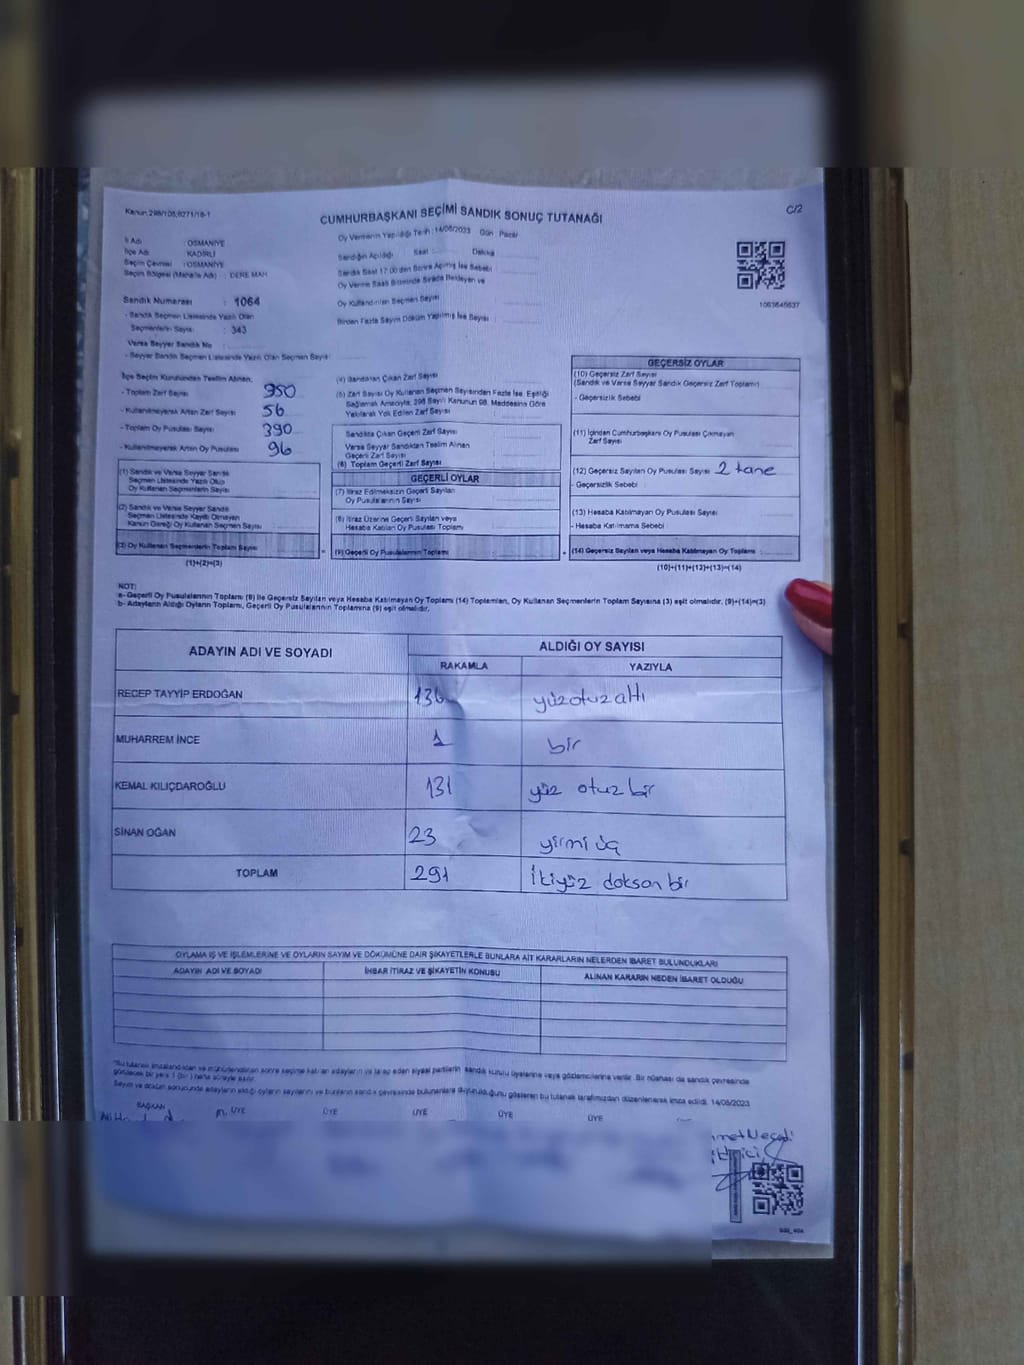 Kanun: 298/105,6271/16-1
CUMHURBAŞKANI SEÇİMİ SANDIK SONUÇ TUTANAĞI
C/2
Oy Vermenin Yapıldığı Tarih : 14/05/2023 Gün : Pazar
İl Adı : OSMANİYE
İlçe Adı : KADİRLİ
Seçim Çevresi : OSMANİYE
Seçim Bölgesi (Mahalle Adı) : DERE MAH
Sandığın Açıldığı Saat : Dakika
Sandık Saat 17:00'den Sonra Açılmış İse Sebebi
Oy Verme Saati Bitiminde Sırada Bekleyen ve
Oy Kullandırılan Seçmen Sayısı
Birden Fazla Sayım Döküm Yapılmış İse Sayısı
1063645637
Sandık Numarası : 1064
- Sandık Seçmen Listesinde Yazılı Olan
Seçmenlerin Sayısı : 343
Varsa Seyyar Sandık No
- Seyyar Sandık Seçmen Listesinde Yazılı Olan Seçmen Sayısı
İlçe Seçim Kurulundan Teslim Alınan,
- Toplam Zarf Sayısı 350
- Kullanılmayarak Artan Zarf Sayısı 56
- Toplam Oy Pusulası Sayısı 390
- Kullanılmayarak Artan Oy Pusulası 96
(1) Sandık ve Varsa Seyyar Sandık
Seçmen Listesinde Yazılı Olup
Oy Kullanan Seçmenlerin Sayısı
(2) Sandık ve Varsa Seyyar Sandık
Seçmen Listesinde Kayıtlı Olmayan
Kanun Gereği Oy Kullanan Seçmen Sayısı
(3) Oy Kullanan Seçmenlerin Toplam Sayısı
(1)+(2)=(3)
(4) Sandıktan Çıkan Zarf Sayısı
(5) Zarf Sayısı Oy Kullanan Seçmen Sayısından Fazla İse, Eşitliği
Sağlamak Amacıyla, 298 Sayılı Kanunun 98. Maddesine Göre
Yakılarak Yok Edilen Zarf Sayısı
Sandıkta Çıkan Geçerli Zarf Sayısı
Varsa Seyyar Sandıktan Teslim Alınan
Geçerli Zarf Sayısı
(6) Toplam Geçerli Zarf Sayısı
GEÇERLİ OYLAR
(7) İtiraz Edilmeksizin Geçerli Sayılan
Oy Pusulalarının Sayısı
(8) İtiraz Üzerine Geçerli Sayılan veya
Hesaba Katılan Oy Pusulası Toplamı
(9) Geçerli Oy Pusulalarının Toplamı
GEÇERSİZ OYLAR
(10) Geçersiz Zarf Sayısı
(Sandık ve Varsa Seyyar Sandık Geçersiz Zarf Toplamı)
- Geçersizlik Sebebi
(11) İçinden Cumhurbaşkanı Oy Pusulası Çıkmayan
Zarf Sayısı
(12) Geçersiz Sayılan Oy Pusulası Sayısı 2 tane
- Geçersizlik Sebebi
(13) Hesaba Katılmayan Oy Pusulası Sayısı
- Hesaba Katılmama Sebebi
(14) Geçersiz Sayılan veya Hesaba Katılmayan Oy Toplamı
(10)+(11)+(12)+(13)=(14)
NOT:
a- Geçerli Oy Pusulalarının Toplamı (9) ile Geçersiz Sayılan veya Hesaba Katılmayan Oy Toplamı (14) Toplamları, Oy Kullanan Seçmenlerin Toplam Sayısına (3) eşit olmalıdır. (9)+(14)=(3)
b- Adayların Aldığı Oyların Toplamı, Geçerli Oy Pusulalarının Toplamına (9) eşit olmalıdır.
ADAYIN ADI VE SOYADI ALDIĞI OY SAYISI
RAKAMLA YAZIYLA
RECEP TAYYİP ERDOĞAN 136 yüzotuzaltı
MUHARREM İNCE 1 bir
KEMAL KILIÇDAROĞLU 131 yüz otuz bir
SİNAN OĞAN 23 yirmi üç
TOPLAM 291 İkiyüz doksan bir
OYLAMA İŞ VE İŞLEMLERİNE VE OYLARIN SAYIM VE DÖKÜMÜNE DAİR ŞİKAYETLERLE BUNLARA AİT KARARLARIN NELERDEN İBARET BULUNDUKLARI
ADAYIN ADI VE SOYADI İHBAR İTİRAZ VE ŞİKAYETİN KONUSU ALINAN KARARIN NEDEN İBARET OLDUĞU
Sayım ve döküm sonucunda adayların aldığı oyların sayılarını ve bunların sandık çevresinde bulunanlara duyurulduğunu gösteren bu tutanak tarafımızdan düzenlenerek imza edildi. 14/05/2023
BAŞKAN ÜYE ÜYE ÜYE ÜYE ÜYE